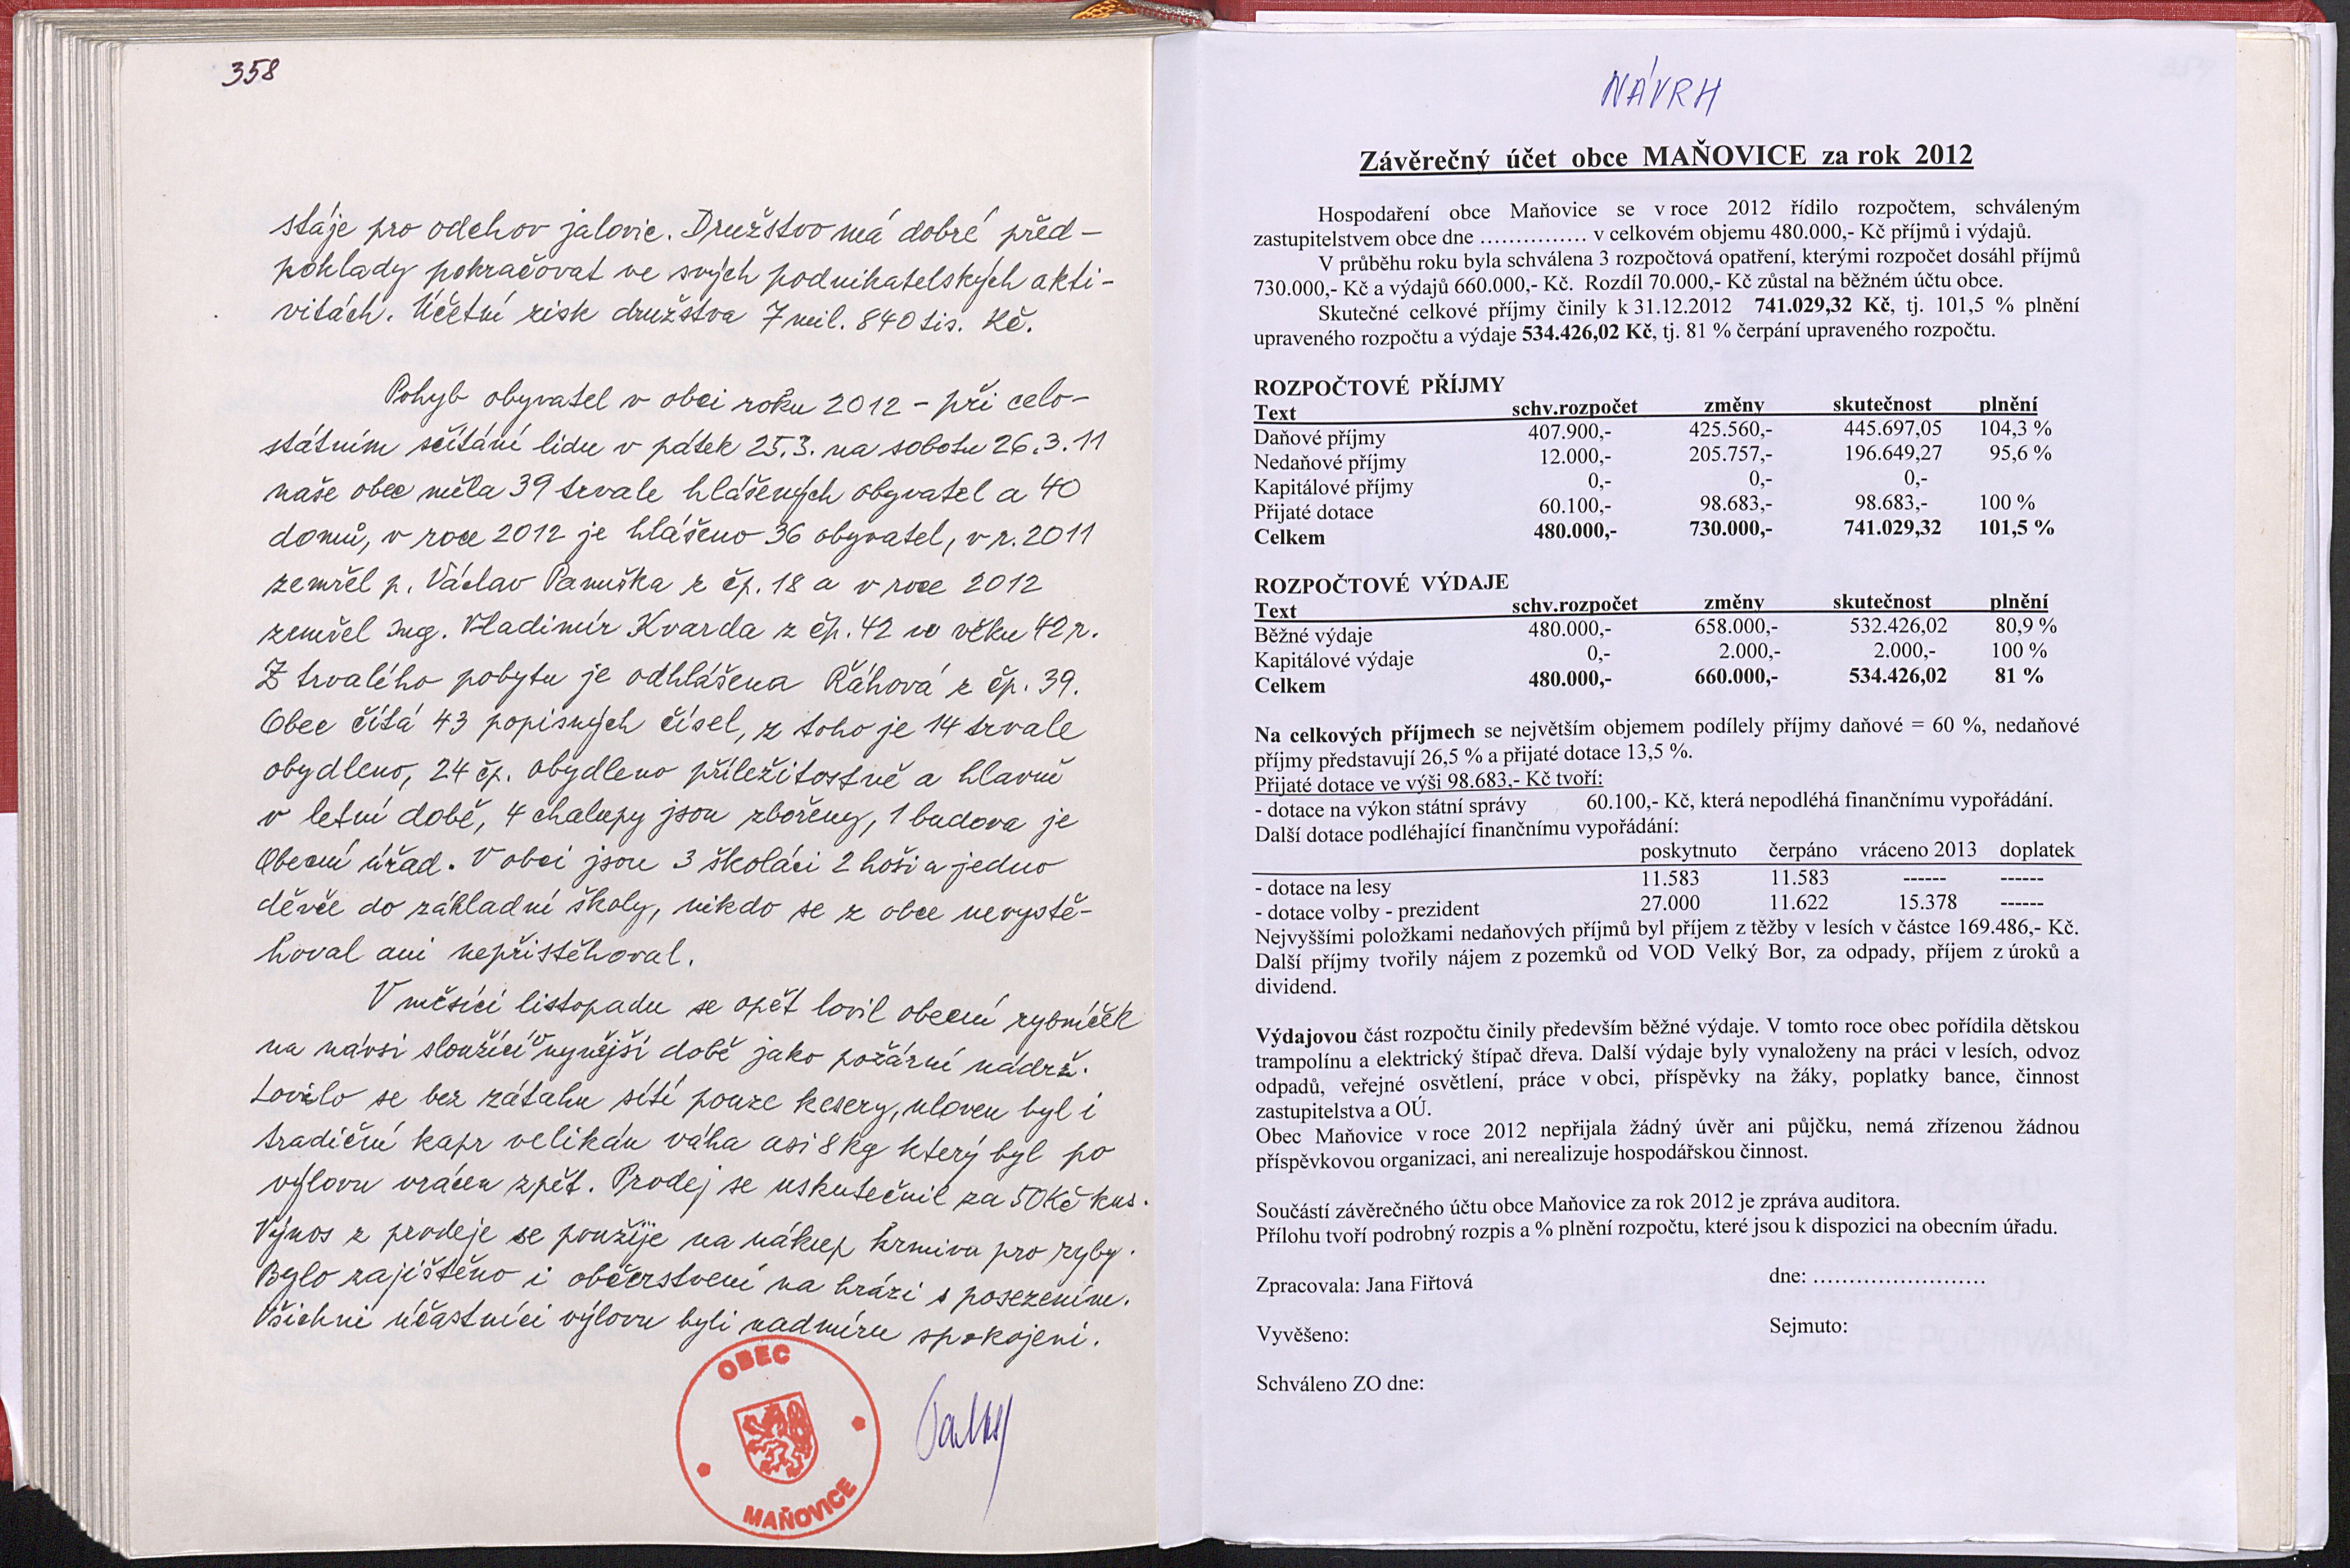 358
stáje pro odchov jalovic. Družstvo má dobré před-
poklady pokračovat ve svých podnikatelských akti-
vitách. Účetní zisk družstva 7 mil. 840 tis. Kč.
Pohyb obyvatel v obci roku 2012 - při celo-
státním sčítání lidu v pátek 25.3. na sobotu 26.3.11
naše obec měla 39 trvale hlášených obyvatel a 40
domů, v roce 2012 je hlášeno 36 obyvatel, v r. 2011
zemřel p. Václav Panuška z čp. 18 a v roce 2012
zemřel Ing. Vladimír Kvarda z čp. 42 ve věku 42 r.
Z trvalého pobytu je odhlášena Řáhová z čp. 39.
Obec čítá 43 popisných čísel, z toho je 14 trvale
obydleno, 24 čp. obydleno příležitostně a hlavně
v letní době, 4 chalupy jsou zbořeny, 1 budova je
Obecní úřad. V obci jsou 3 školáci 2 hoši a jedno
děvče do základní školy, nikdo se z obce nevystě-
hoval ani nepřistěhoval.
V měsíci listopadu se opět lovil obecní rybníček
na návsi sloužící v nynější době jako požární nádrž.
Lovilo se bez zátahu sítí pouze kesery, uloven byl i
tradiční kapr velikán váha asi 8 kg který byl po
výlovu vrácen zpět. Prodej se uskutečnil za 50 Kč kus.
Výnos z prodeje se použije na nákup krmiva pro ryby.
Bylo zajištěno i občerstvení na hrázi s posezením.
Všichni účastníci výlovu byli nadmíru spokojeni.
OBEC
MAŇOVICE
NÁVRH
Závěrečný účet obce MAŇOVICE za rok 2012
Hospodaření obce Maňovice se v roce 2012 řídilo rozpočtem, schváleným
zastupitelstvem obce dne ............... v celkovém objemu 480.000,- Kč příjmů i výdajů.
V průběhu roku byla schválena 3 rozpočtová opatření, kterými rozpočet dosáhl příjmů
730.000,- Kč a výdajů 660.000,- Kč. Rozdíl 70.000,- Kč zůstal na běžném účtu obce.
Skutečné celkové příjmy činily k 31.12.2012 741.029,32 Kč, tj. 101,5 % plnění
upraveného rozpočtu a výdaje 534.426,02 Kč, tj. 81 % čerpání upraveného rozpočtu.
ROZPOČTOVÉ PŘÍJMY
Text schv.rozpočet změny skutečnost plnění
Daňové příjmy 407.900,- 425.560,- 445.697,05 104,3 %
Nedaňové příjmy 12.000,- 205.757,- 196.649,27 95,6 %
Kapitálové příjmy 0,- 0,- 0,-
Přijaté dotace 60.100,- 98.683,- 98.683,- 100 %
Celkem 480.000,- 730.000,- 741.029,32 101,5 %
ROZPOČTOVÉ VÝDAJE
Text schv.rozpočet změny skutečnost plnění
Běžné výdaje 480.000,- 658.000,- 532.426,02 80,9 %
Kapitálové výdaje 0,- 2.000,- 2.000,- 100 %
Celkem 480.000,- 660.000,- 534.426,02 81 %
Na celkových příjmech se největším objemem podílely příjmy daňové = 60 %, nedaňové
příjmy představují 26,5 % a přijaté dotace 13,5 %.
Přijaté dotace ve výši 98.683,- Kč tvoří:
- dotace na výkon státní správy 60.100,- Kč, která nepodléhá finančnímu vypořádání.
Další dotace podléhající finančnímu vypořádání:
poskytnuto čerpáno vráceno 2013 doplatek
- dotace na lesy 11.583 11.583 ------ ------
- dotace volby - prezident 27.000 11.622 15.378 ------
Nejvyššími položkami nedaňových příjmů byl příjem z těžby v lesích v částce 169.486,- Kč.
Další příjmy tvořily nájem z pozemků od VOD Velký Bor, za odpady, příjem z úroků a
dividend.
Výdajovou část rozpočtu činily především běžné výdaje. V tomto roce obec pořídila dětskou
trampolínu a elektrický štípač dřeva. Další výdaje byly vynaloženy na práci v lesích, odvoz
odpadů, veřejné osvětlení, práce v obci, příspěvky na žáky, poplatky bance, činnost
zastupitelstva a OÚ.
Obec Maňovice v roce 2012 nepřijala žádný úvěr ani půjčku, nemá zřízenou žádnou
příspěvkovou organizaci, ani nerealizuje hospodářskou činnost.
Součástí závěrečného účtu obce Maňovice za rok 2012 je zpráva auditora.
Přílohu tvoří podrobný rozpis a % plnění rozpočtu, které jsou k dispozici na obecním úřadu.
Zpracovala: Jana Fiřtová dne: ........................
Vyvěšeno: Sejmuto:
Schváleno ZO dne: